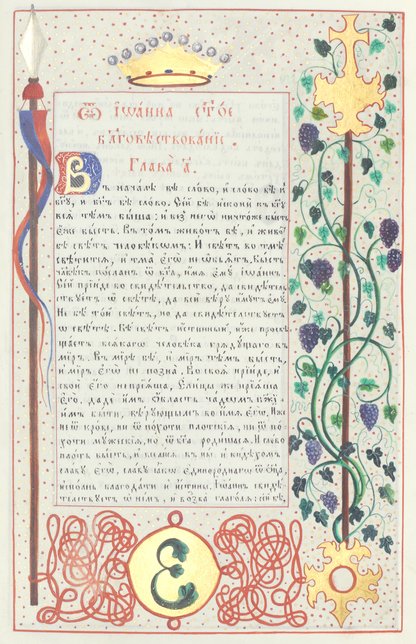 Ѿ Іѡа́нна ст҃о́е
бл҃говѣствова́нїе.
Глава̀ а҃.
Въ нача́лѣ бѣ̀ сло́во, и҆ сло́во бѣ̀ к
бг҃ꙋ, и҆ бг҃ъ бѣ̀ сло́во. Се́й бѣ̀ и҆сконѝ къ бг҃ꙋ
всѧ̑ тѣ́мъ бы́ша: и҆ без̾ негѡ̀ ничто́же бы́сть
є҆́же бы́сть. Въ то́мъ живо́тъ бѣ̀, и҆ живо́тъ
бѣ̀ свѣ́тъ человѣ́кѡмъ: И҆ свѣ́тъ во тмѣ̀
свѣ́титсѧ, и҆ тма̀ є҆гѡ̀ не ѡ҆б̾ѧ́тъ. Бы́сть
чл҃вѣ́къ по́сланъ ѿ бг҃а, и҆́мѧ є҆мꙋ̀ і҆ѡа́ннъ
Се́й прїи́де во свидѣ́тельство, да свидѣ́тель
ствꙋетъ ѡ҆ свѣ́тѣ, да всѝ вѣ́рꙋ и҆́мꙋтъ є҆мꙋ̀.
Не бѣ̀ то́й свѣ́тъ, но да свидѣ́тельствꙋетъ
ѡ҆ свѣ́тѣ. Бѣ̀ свѣ́тъ и҆́стинный, и҆́же просвѣ
ща́етъ всѧ́каго человѣ́ка грѧдꙋ́щаго въ
мі́ръ. Въ мі́рѣ бѣ̀, и҆ мі́ръ тѣ́мъ бы́сть,
и҆ мі́ръ є҆гѡ̀ не позна̀. Во своѧ̑ прїи́де, и҆
своѝ є҆гѡ̀ не прїѧ́ша, Є҆ли́цы же прїѧ́ша
є҆го̀, дадѐ и҆̀мъ ѡ҆́бласть ча́дѡмъ бж҃ї
имъ бы́ти, вѣ́рꙋющымъ во и҆́мѧ є҆гѡ̀, И҆̀же
не ѿ кро́ве, ни ѿ по́хоти плотскі́ѧ, ни ѿ
по́хоти мꙋ́жескїѧ, но ѿ бг҃а роди́шасѧ. И҆ сло́во
пло́ть бы́сть, и҆ всели́сѧ въ ны̀ и҆ ви́дѣхомъ
сла́вꙋ є҆гѡ̀, сла́вꙋ ꙗ҆́кѡ є҆диноро́днагѡ ѿ ѻ҆ц҃а̀,
и҆спо́лнь благода́ти и҆ и҆́стины, І҆ѡа́ннъ свидѣ́
тельствꙋетъ ѡ҆ не́мъ, и҆ воззва̀ глаго́лѧ: се́й бѣ̀,
Є